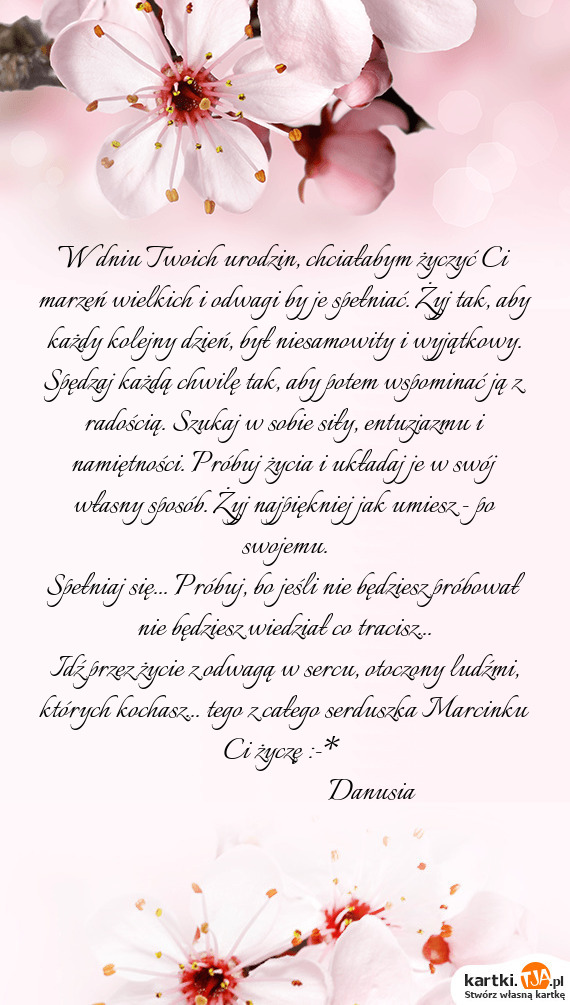 W dniu Twoich urodzin, chciałabym życzyć Ci
marzeń wielkich i odwagi by je spełniać. Żyj tak, aby
każdy kolejny dzień, był niesamowity i wyjątkowy.
Spędzaj każdą chwilę tak, aby potem wspominać ją z
radością. Szukaj w sobie siły, entuzjazmu i
namiętności. Próbuj życia i układaj je w swój
własny sposób. Żyj najpiękniej jak umiesz - po
swojemu.
Spełniaj się... Próbuj, bo jeśli nie będziesz próbował
nie będziesz wiedział co tracisz...
Idź przez życie z odwagą w sercu, otoczony ludźmi,
których kochasz... tego z całego serduszka Marcinku
Ci życzę :-*
Danusia
kartki.TJA.pl
Stwórz własną kartkę